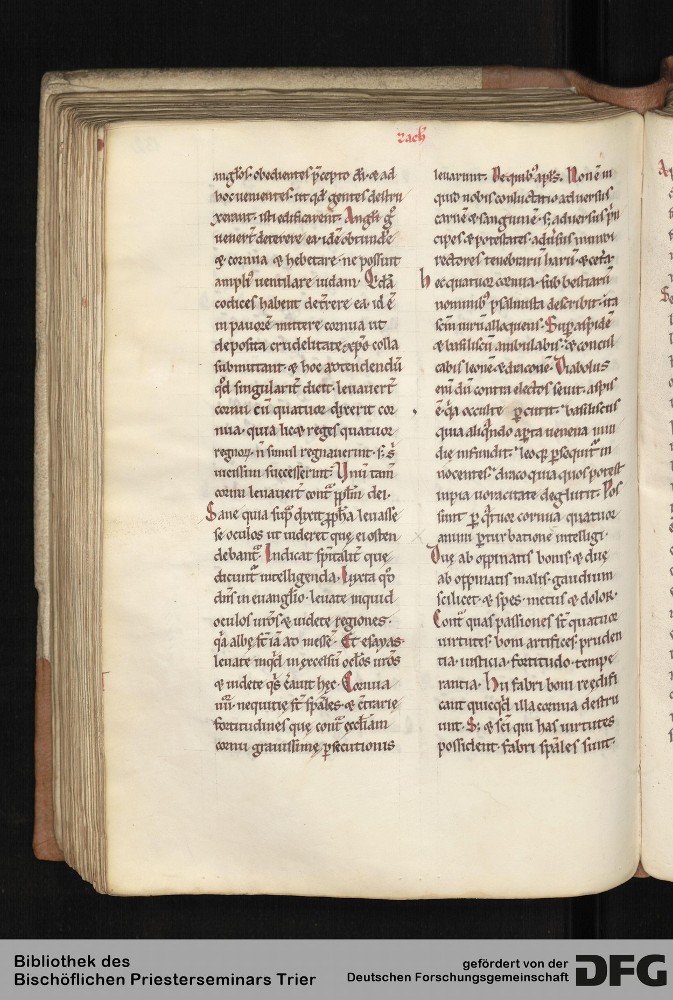 zach
anglos. obedientes p̄cepto dn̄i. & ad
hoc uenientes. ut qd̄ gentes destru
xerant. isti edificarent. Angli g̊
uener̄t deterere ea. id ē obtunde
& cornua & hebetare. ne possint
ampli⁹ uentilare iudam. Q̄dā
codices habent det̄rere ea. id ē
in pauorē mittere cornua ut
deposita crudelitate xp̄o colla
submittant. & hoc attendendū
qd̄ singularit̄ dicit. leuauer̄t
cornu. cū quatuor dixerit cor
nua. quia lic& reges quatuor
regnoꝝ. n̄ simul regnauerunt. s;
uicissim successerunt. Unū tam̄
cornu leuauer̄t cont̄ pplm̄ dei.
Sane quia sup̄ dixit ppha leuasse
se oculos ut uideret que ei osten
debant̄. Indicat sp̄italit̄ que
dicunt̄ intelligenda. Iuxta qd̊
dn̄s in euanglio. leuate inquid
oculos ur̄os & uidete regiones.
q̄a albę st̄ iā ad messē. Et esayas
leuate inqd̄ in excelsū oc̄los ur̄os
& uidete q̄s c̄auit hęc. Cornua
nequitię st̄ sp̄ales. & c̄trarię
fortitudines que cont̄ eccl̄iam
cornu grauissimę ꝑsecutionis
leuarunt. De quib⁹ apl̄s. Non ē in
quid nobis conluctatio aduersus
carnē & sanguinē. s; aduersus p̄n
cipes & potestates. adūsus mundi
rectores tenebrarū harū & cet̄a.
hec quatuor cornua. sub bestiarū
nominib⁹ psalmista describit. ita
sc̄m uirū alloquens. Sup̄ aspidē
& basiliscū ambulabis. & concul
cabis leonē & draconē. Diabolus
eni dū contra electos seuit. aspis
ē. q̄a occulte ꝑcutit. basiliscus
quia aliq̄ndo aꝑta uenena mun
die infundit. leo q̄a ꝑsequit̄ in
nocentes. draco quia quos potest
inpia uoracitate deglutit. Pos
sunt ꝑ q̄tuor cornua quatuor
animi ꝑturbatione intelligi.
Due ab oppinatis bonis. & duę
ab oppinatis malis. gaudium
scilicet. & spes. metus & dolor.
Cont̄ quas passiones st̄ quatuor
uirtutes boni artifices. pruden
tia. iusticia. fortitudo. tempe
rantia. Hii fabri boni reędifi
cant quicqd̄ illa cornua destru
unt. S; & sc̄i qui has uirtutes
possident. fabri sp̄ales sunt.
Bibliothek des
Bischöflichen Priesterseminars Trier
gefördert von der
Deutschen Forschungsgemeinschaft
DFG